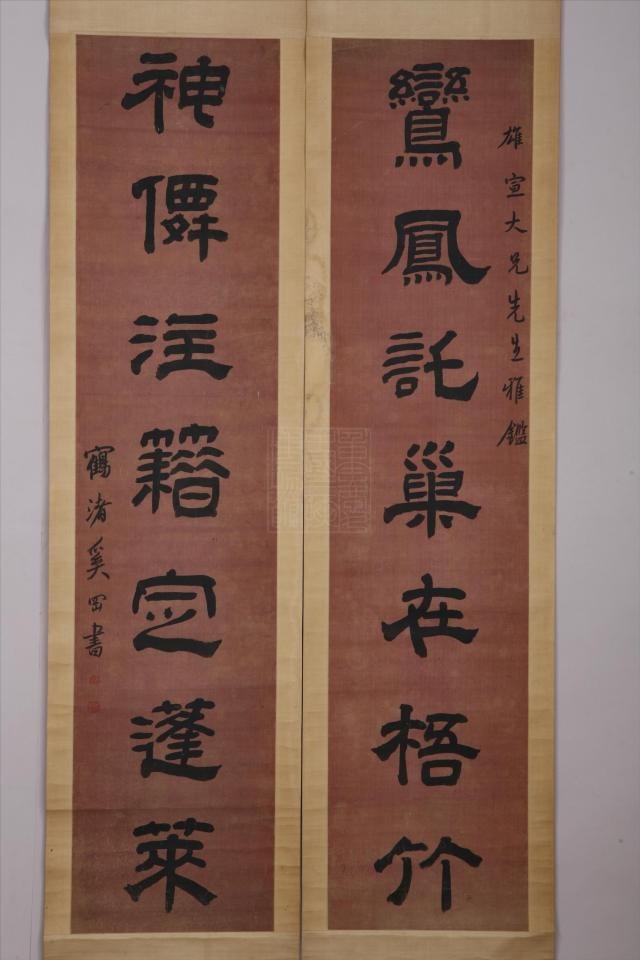 雄宣大兄先生雅鑑
鸞鳳託巢在梧竹
神僊注籍定蓬萊
鶴渚奚岡書